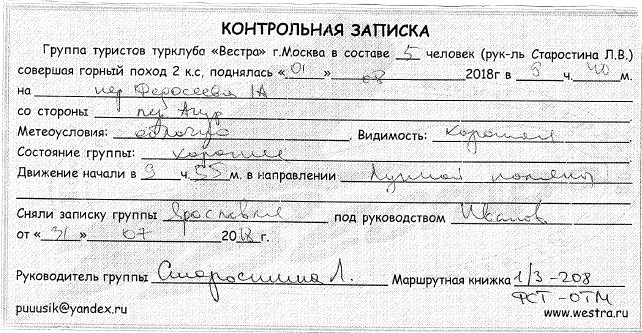 КОНТРОЛЬНАЯ ЗАПИСКА
Группа туристов турклуба «Вестра» г.Москва в составе 5 человек (рук-ль Старостина Л.В.)
совершая горный поход 2 к.с, поднялась «01» 08 2018г в 9 ч. 40 м.
на пер Федосеева 1А
со стороны пер Агур
Метеоусловия: облачно. Видимость: хорошая
Состояние группы: хорошее
Движение начали в 9 ч. 55 м. в направлении Лунной поляны
Сняли записку группы Ярославля под руководством Иванов
от «31» 07 2018г.
Руководитель группы Старостина Л. Маршрутная книжка 1/3-208
ФСТ-ОТМ
puuusik@yandex.ru www.westra.ru